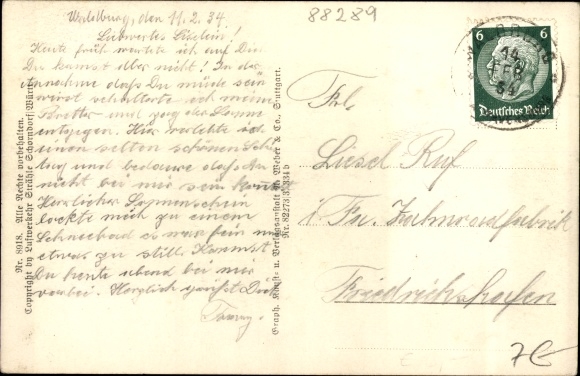 88289
Waldburg, den 11.2.34.
Liebwertes Lislein!
Heute früh wartete ich auf Dich
Du kamst aber nicht! In der
Annahme dass Du müde sein
wirst schulterte ich meine
Bretter und zog der Sonne
entgegen. Hier verlebte ich
einen selten schönen Sonn
tag und bedaure dass Du
nicht bei mir sein konnt
Herzlicher Sonnenschein
lockte mich zu einem
Schneebad es war fein nur
etwas zu still. Kommst
Du heute abend bei mir
vorbei. Herzlich grüsst Dich
Nr. 8918. Alle Rechte vorbehalten.
Copyright by Luftverkehr Strähle Schorndorf Württ.
Graph. Kunst- u. Verlagsanstalt Weber & Co., Stuttgart.
6 6
Deutsches Reich
14
FEB
34
Frl.
Liesel Ruf
i. Fa. Zahnradfabrik
Friedrichshafen
7E